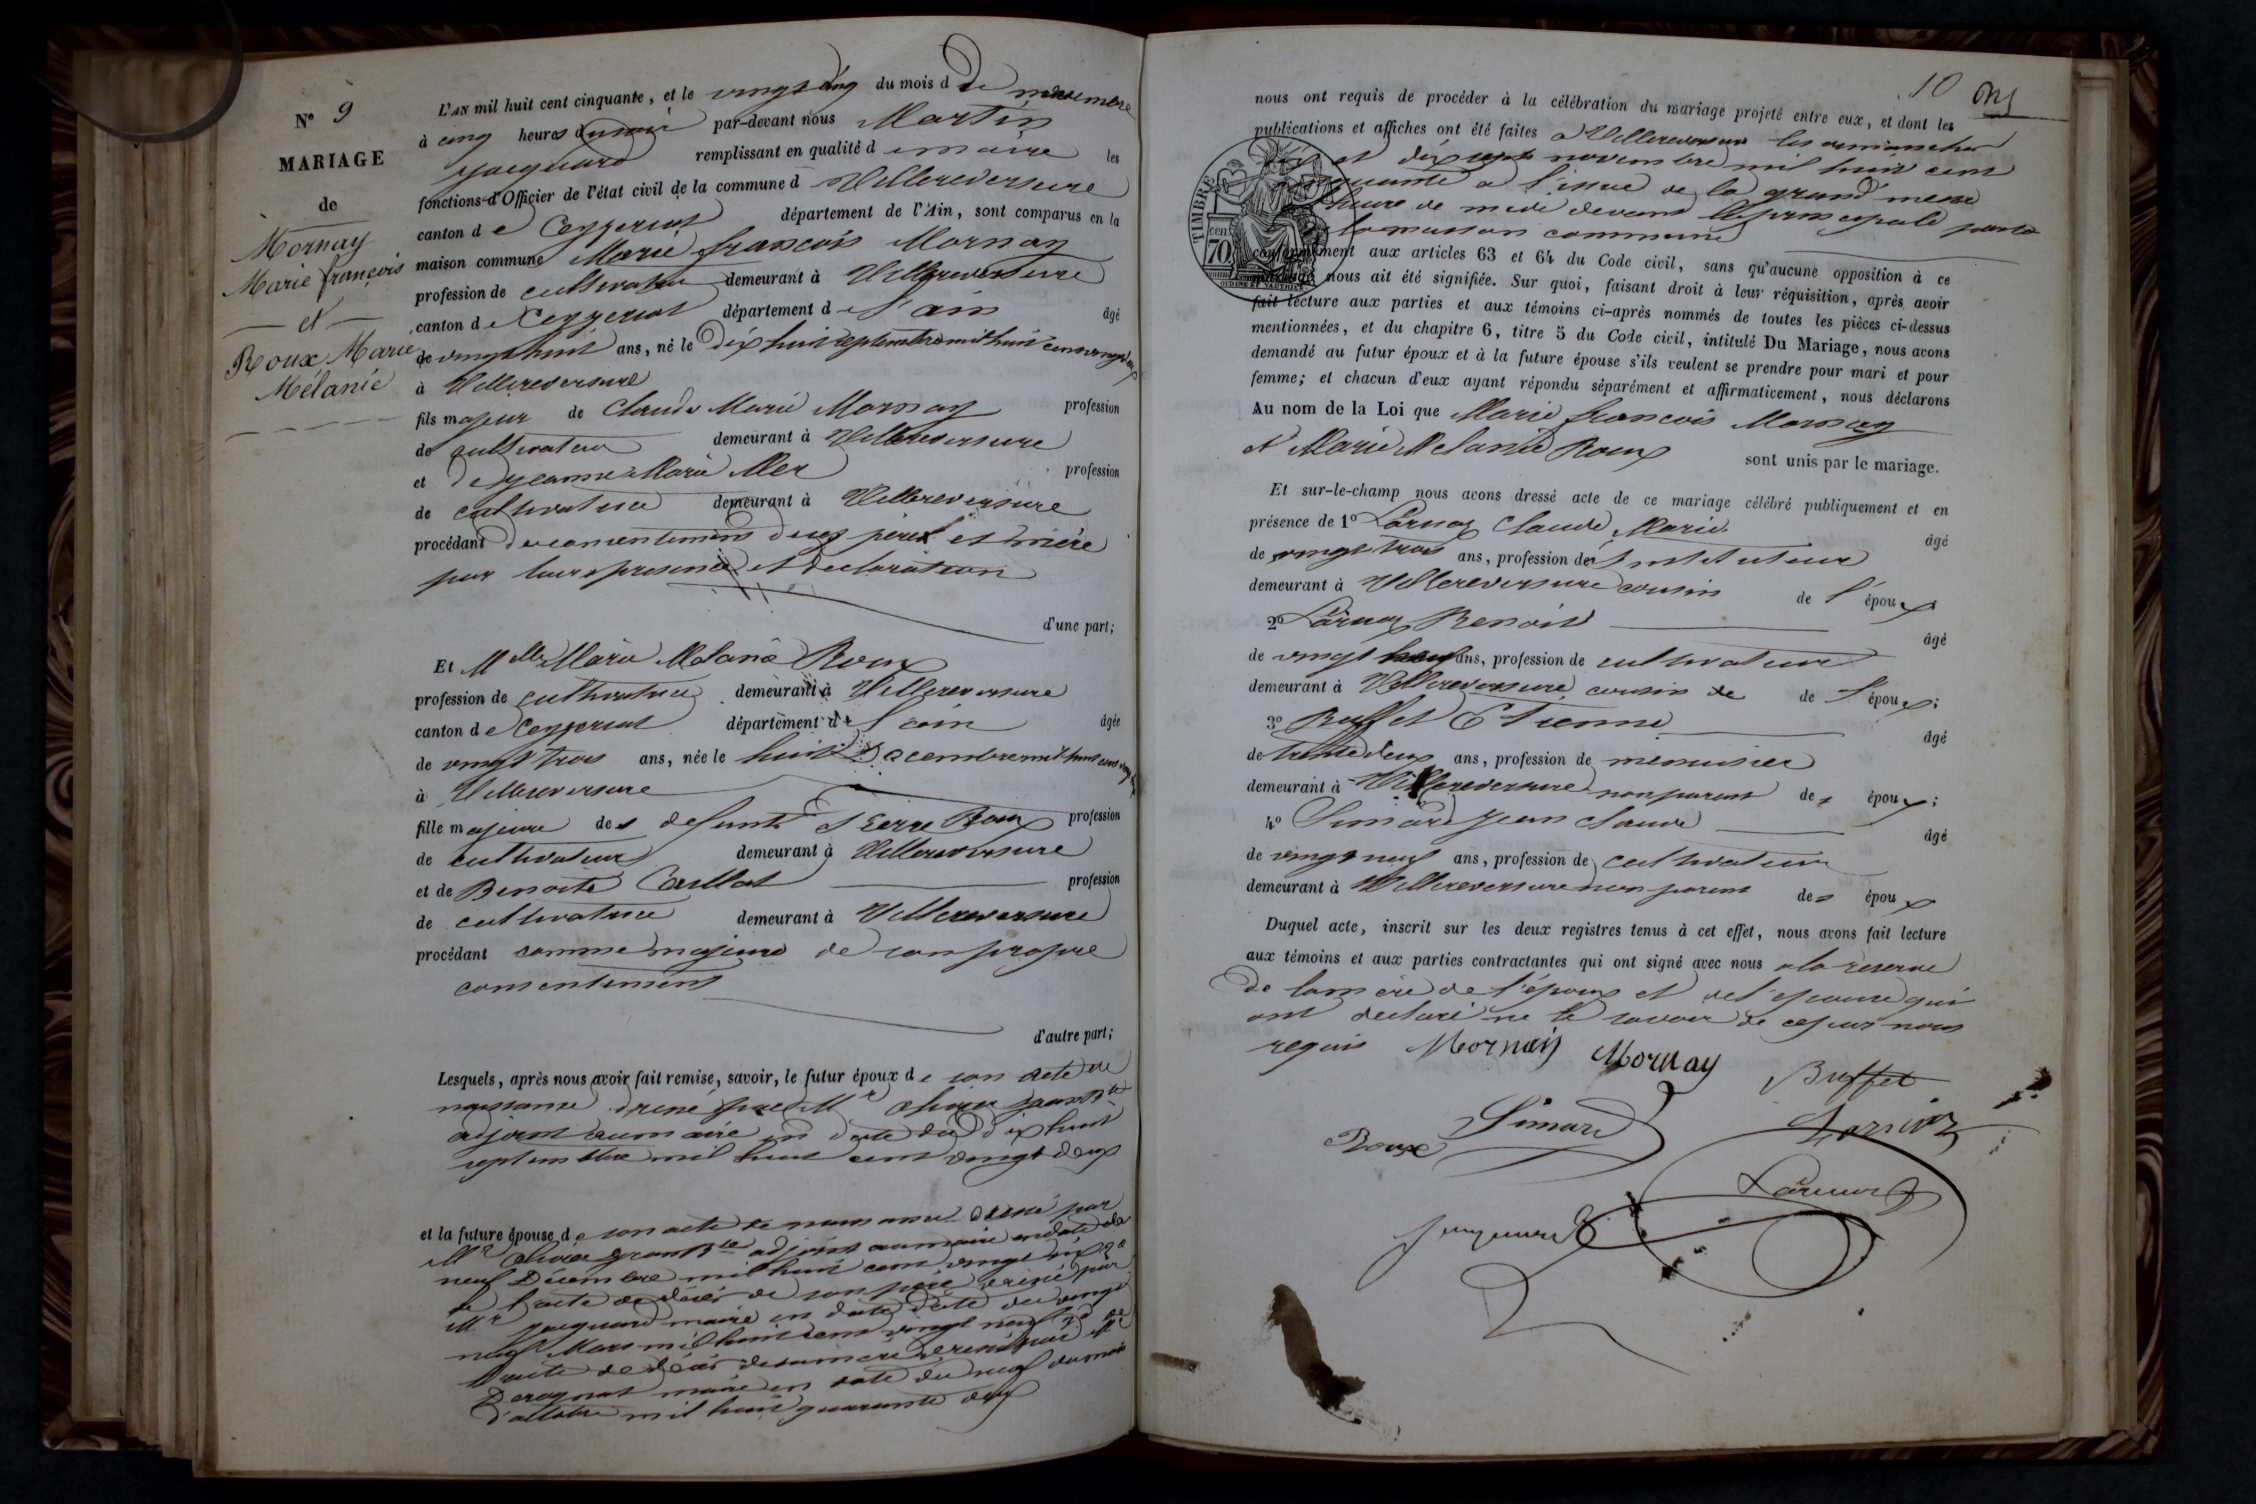 N° 9
MARIAGE
de
Mornay
Marie françois
et
Roux Marie
Mélanie
L'AN mil huit cent cinquante, et le vingt cinq du mois d de novembre
à cinq heures du soir par-devant nous Martin
Jacquard remplissant en qualité d e maire les
fonctions d'Officier de l'état civil de la commune d Villereversure
canton d e Ceyzeriat département de l'Ain, sont comparus en la
maison commune Marie françois Mornay
profession de cultivateur demeurant à Villereversure
canton d e Ceyzeriat département d e l'ain âgé
de vingt huit ans, né le dix huit septembre mil huit cent vingt deux
à Villereversure
fils majeur de Claude Marie Mornay profession
de cultivateur demeurant à Villereversure
et de jeanne Marie Mer profession
de cultivatrice demeurant à Villereversure
procédant du consentement de ses père et mère
par leur presence et declaration
d'une part;
Et Melle Marie Melanie Roux
profession de cultivatrice demeurant à Villereversure
canton d e Ceyzeriat département d e l'ain âgée
de vingt trois ans, née le huit decembre mil huit cent vingt
à Villereversure
fille majeure de s defunts Pierre Roux profession
de cultivateur demeurant à Villereversure
et de Benoite Caillat profession
de cultivatrice demeurant à Villereversure
procédant comme majeure de son propre
consentement
d'autre part;
Lesquels, après nous avoir fait remise, savoir, le futur époux d e son acte de
naissance dressé par Mr olivier jean Bte
adjoint au maire en date du dix huit
septembre mil huit cent vingt deux
et la future épouse d e son acte de naissance dressé par
Mr olivier jean Bte adjoint au maire en date du
neuf Décembre mil huit cent vingt six 2e
de l'acte de décès de son père dressé par
Mr jacquard maire en date du vingt
neuf Mars mil huit cent vingt neuf 3e de
l'acte de décès de sa mère dressé par Mr
maire en date du neuf du mois
d'octobre mil huit quarante deux
10
nous ont requis de procéder à la célébration du mariage projeté entre eux, et dont les
publications et affiches ont été faites a Villereversure les dimanches
dix et dix sept novembre mil huit cent
cinquante a l'issue de la grand messe
heure de midi devant la principale porte
de la maison commune
conformément aux articles 63 et 64 du Code civil, sans qu'aucune opposition à ce
mariage nous ait été signifiée. Sur quoi, faisant droit à leur réquisition, après avoir
fait lecture aux parties et aux témoins ci-après nommés de toutes les pièces ci-dessus
mentionnées, et du chapitre 6, titre 5 du Code civil, intitulé Du Mariage, nous avons
demandé au futur époux et à la future épouse s'ils veulent se prendre pour mari et pour
femme; et chacun d'eux ayant répondu séparément et affirmativement, nous déclarons
Au nom de la Loi que Marie françois Mornay
et Marie Melanie Roux sont unis par le mariage.
Et sur-le-champ nous avons dressé acte de ce mariage célébré publiquement et en
présence de 1° Larnaz Claude Marie âgé
de vingt trois ans, profession de instituteur
demeurant à Villereversure cousin de l' époux
2° Larnaz Benoit âgé
de vingt ans, profession de cultivateur
demeurant à Villereversure cousin de de l' époux;
3° Buffet Etienne âgé
de trente deux ans, profession de menuisier
demeurant à Villereversure non parent de s époux;
4° Simard Jean Claude âgé
de vingt neuf ans, profession de cultivateur
demeurant à Villereversure non parent de s époux
Duquel acte, inscrit sur les deux registres tenus à cet effet, nous avons fait lecture
aux témoins et aux parties contractantes qui ont signé avec nous a la reserve
de la mère de l'époux et de l'épouse qui
ont declaré ne le savoir de ce par nous
requis Mornay Mornay
Buffet
Simard
Roux
Larnaz
Jacquard
TIMBRE
70 cent